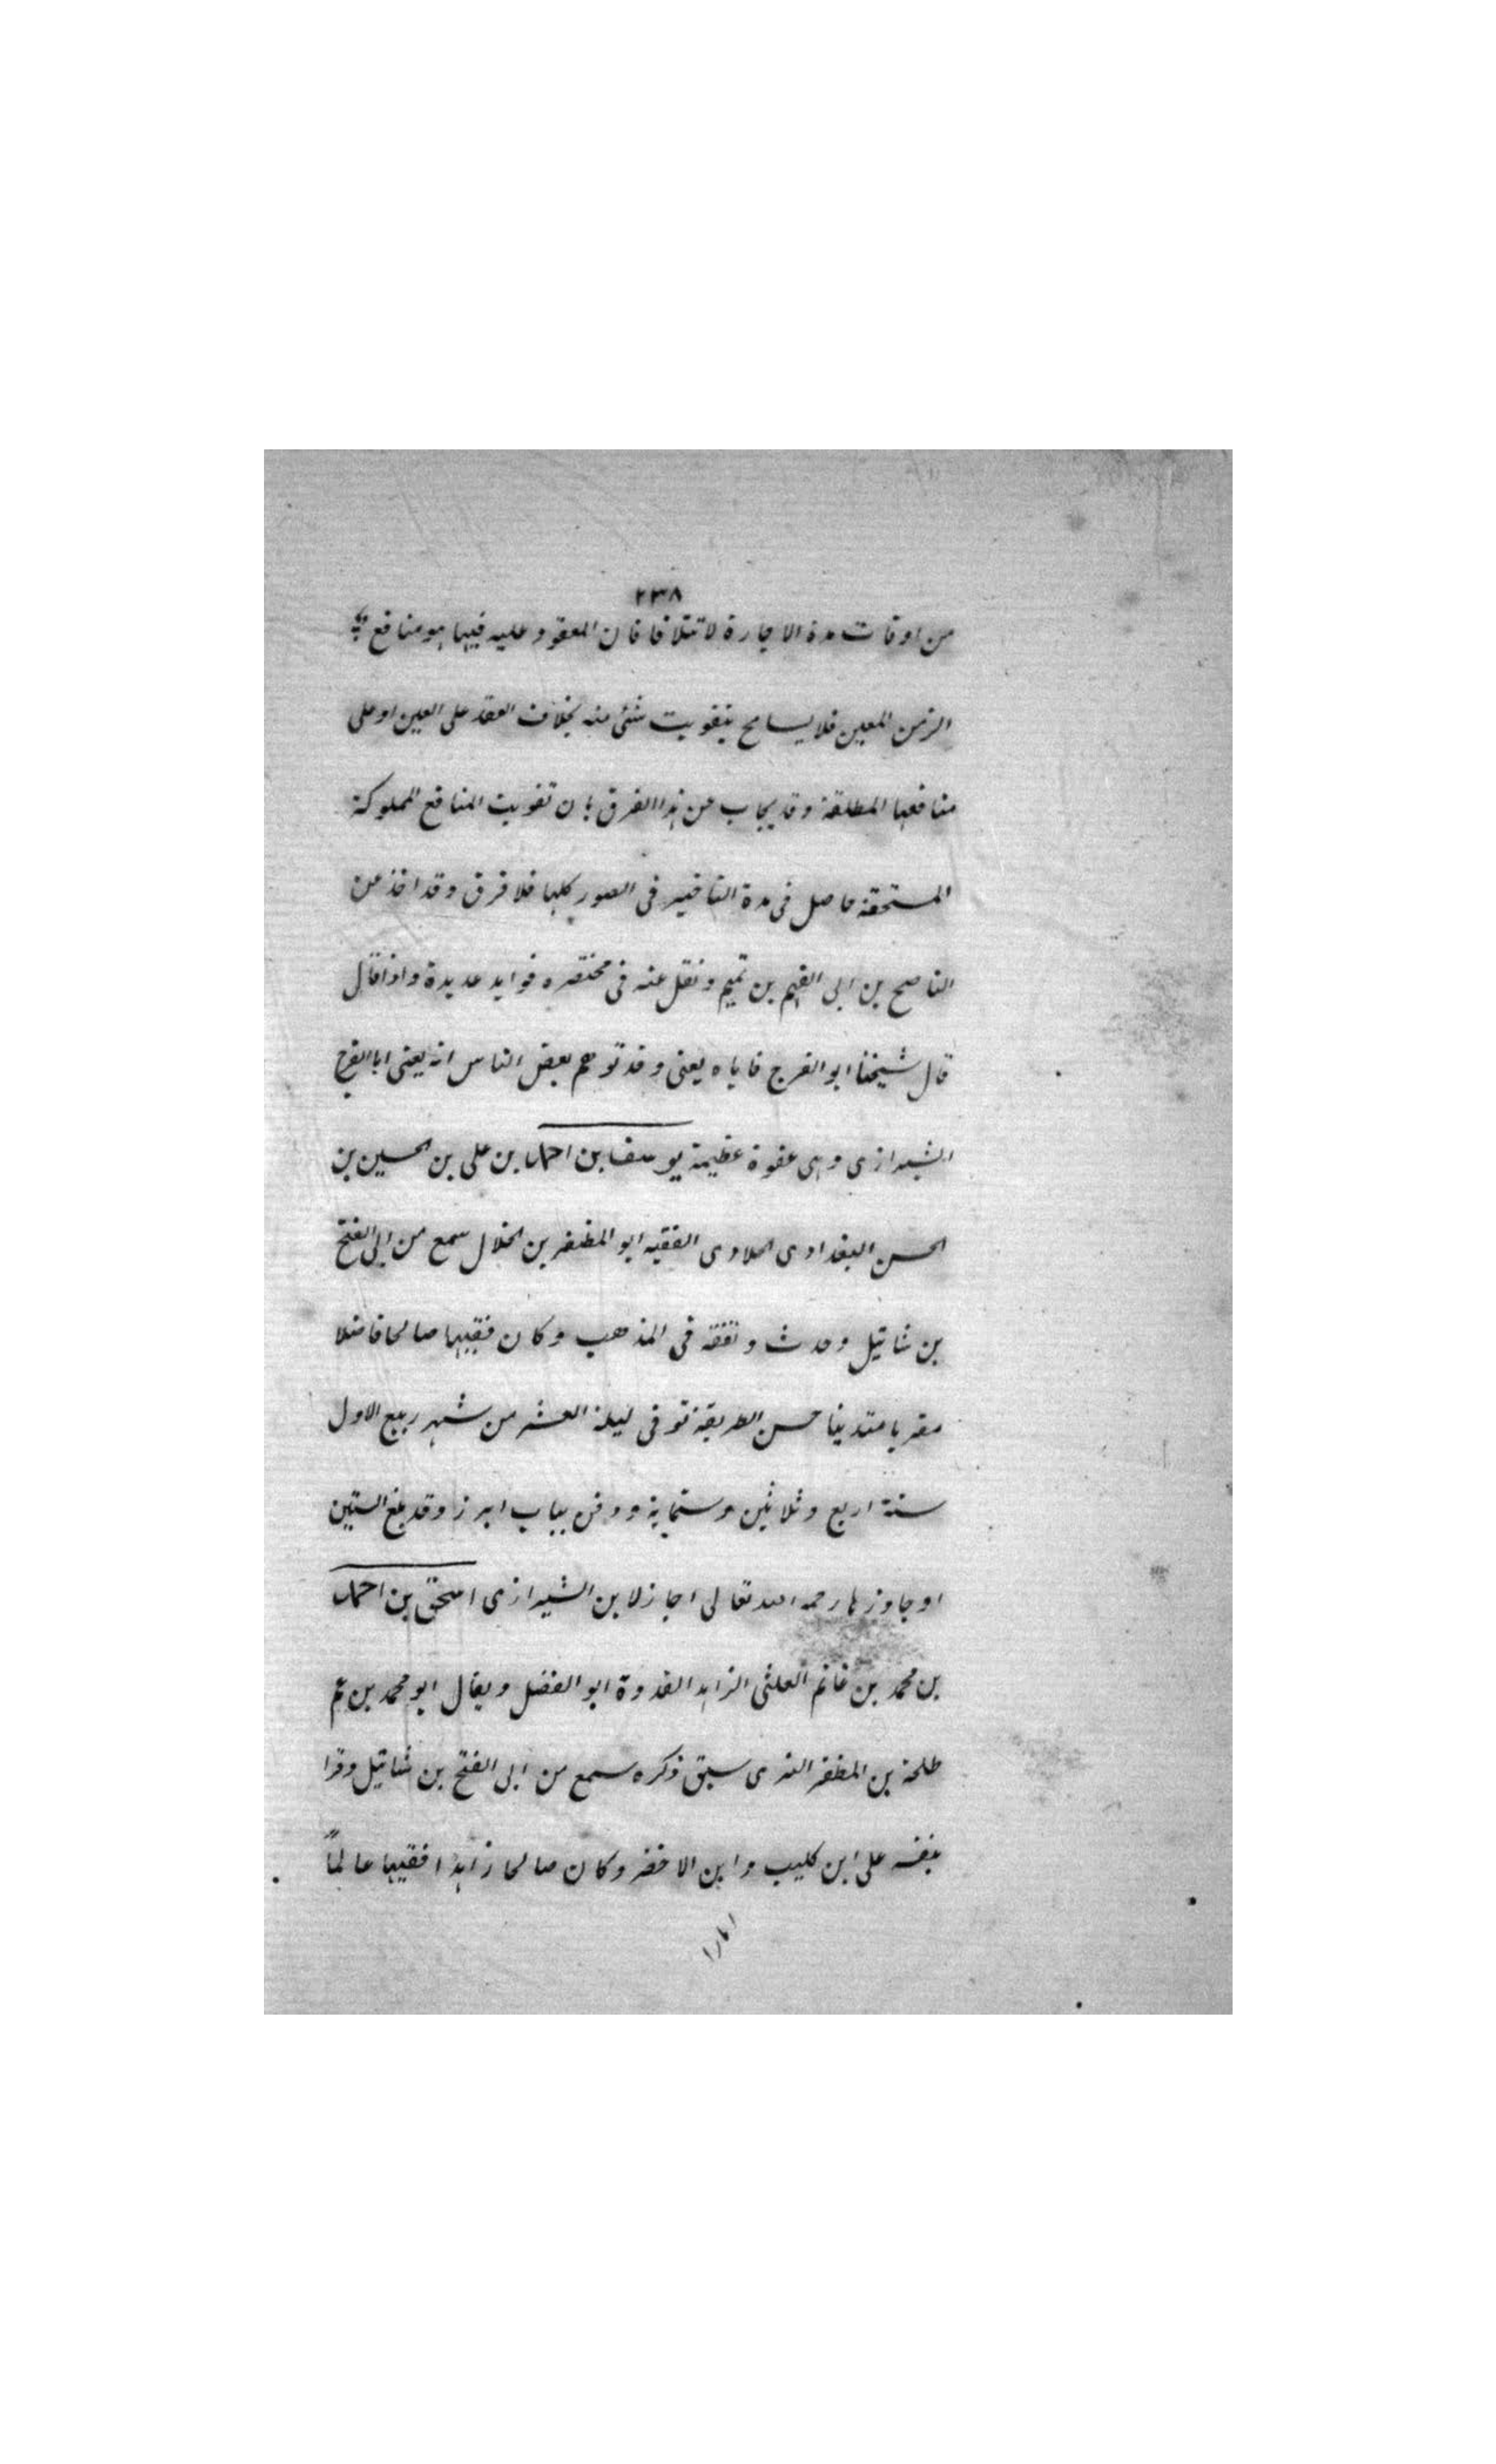 ٢٣٨
من اوقات مدة الاجارة لا تتلافا فان المعقود عليه فيها هو منافع
الزمن المعين فلا يسامح بتفويت شئ منه بخلاف العقد على العين او على
منافعها المطلقة وقد يجاب عن هذا الفرق بان تفويت المنافع المملوكة
المستحقة حاصل فى مدة التاخير فى الصور كلها فلا فرق وقد اخذ عن
الناصح بن ابى الفهم بن تميم ونقل عنه فى مختصره فوايد عديدة واذا قال
قال شيخنا ابو الفرج فاياه يعنى وقد توهم بعض الناس انه يعنى ابا الفرج
الشيرازى وهى عفوة عظيمة يوسف بن احمد بن على بن الحسين بن
الحسن البغدادى الحلاوى الفقيه ابو المظفر بن الخلال سمع من ابى الفتح
بن شاتيل وحدث وتفقه فى المذهب وكان فقيها صالحا فاضلا
مقريا متدينا حسن الطريقة توفى ليلة العشر من شهر ربيع الاول
سنة اربع وثلاثين وستماية ودفن بباب ابرز وقد بلغ الستين
او جاوزها رحمه الله تعالى اجاز لابن الشيرازى اسحق بن احمد
بن محمد بن غانم العلثى الزاهد القدوة ابو الفضل ويقال ابو محمد بن عم
طلحة بن المظفر الذى سبق ذكره سمع من ابى الفتح بن شاتيل وقرا
بنفسه على ابن كليب وابن الاخضر وكان صالحا زاهدا فقيها عالماً
امارا